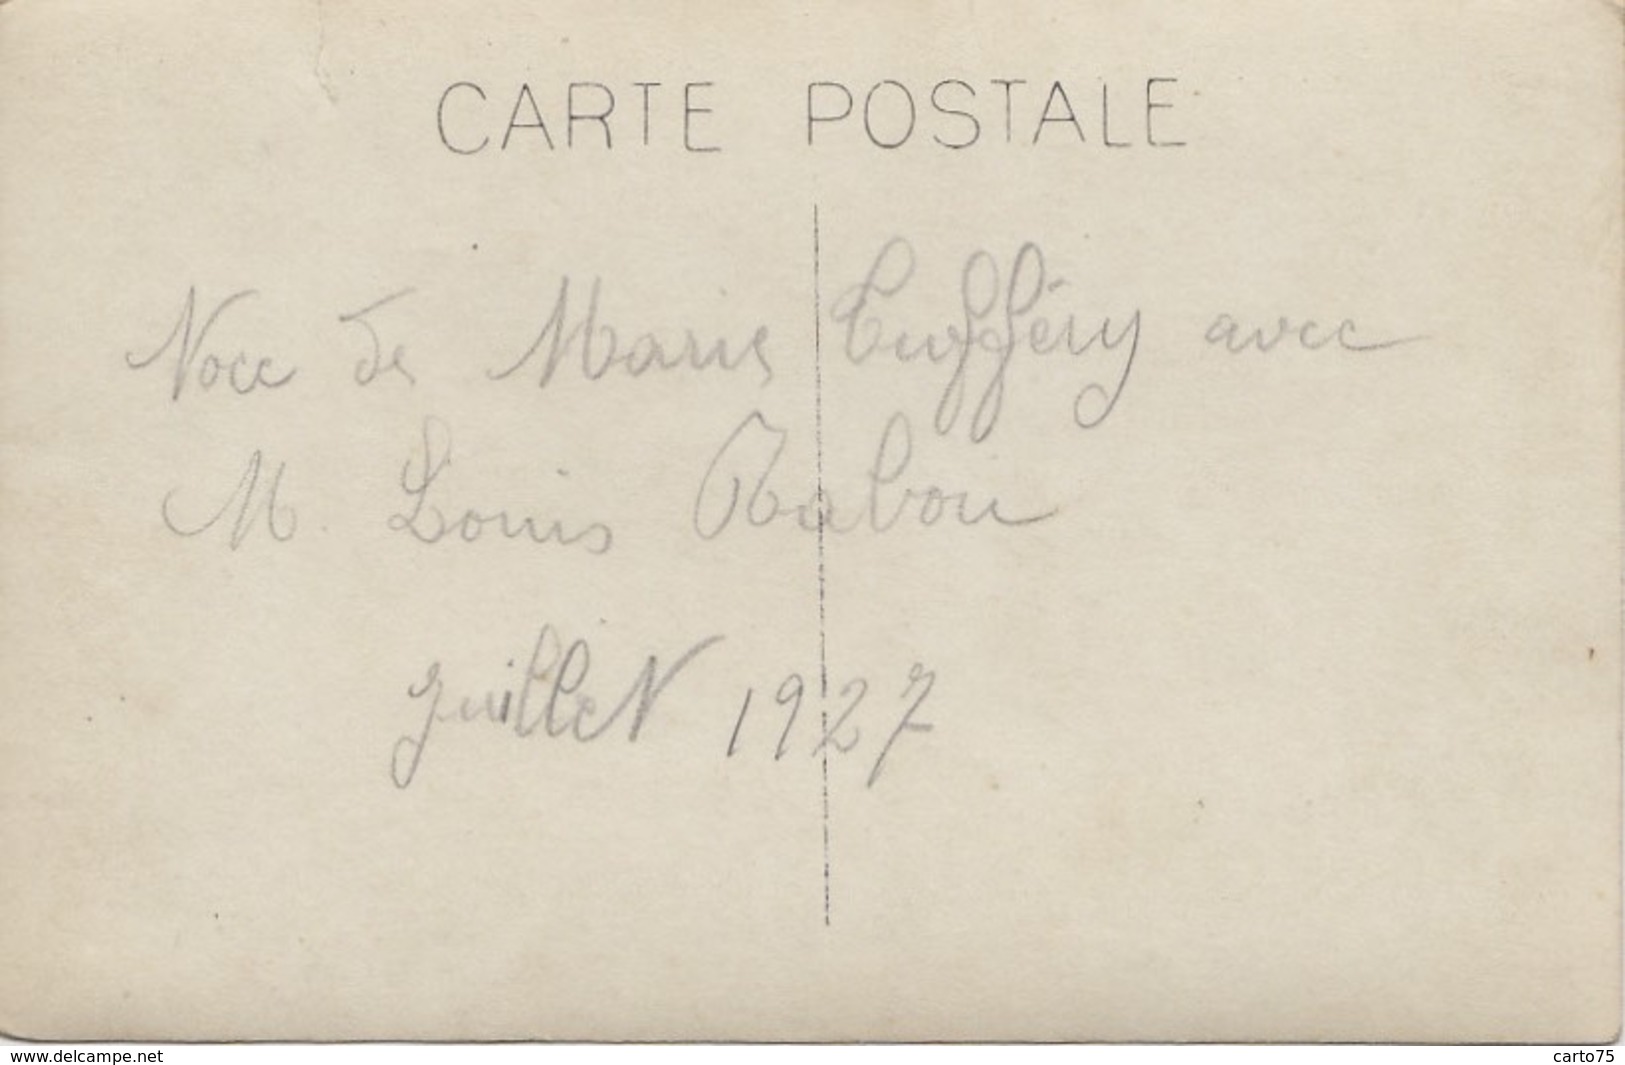 CARTE POSTALE
Noce de Marie Tuffery avec
M. Louis Rabou
Juillet 1927
www.delcampe.net
carto75